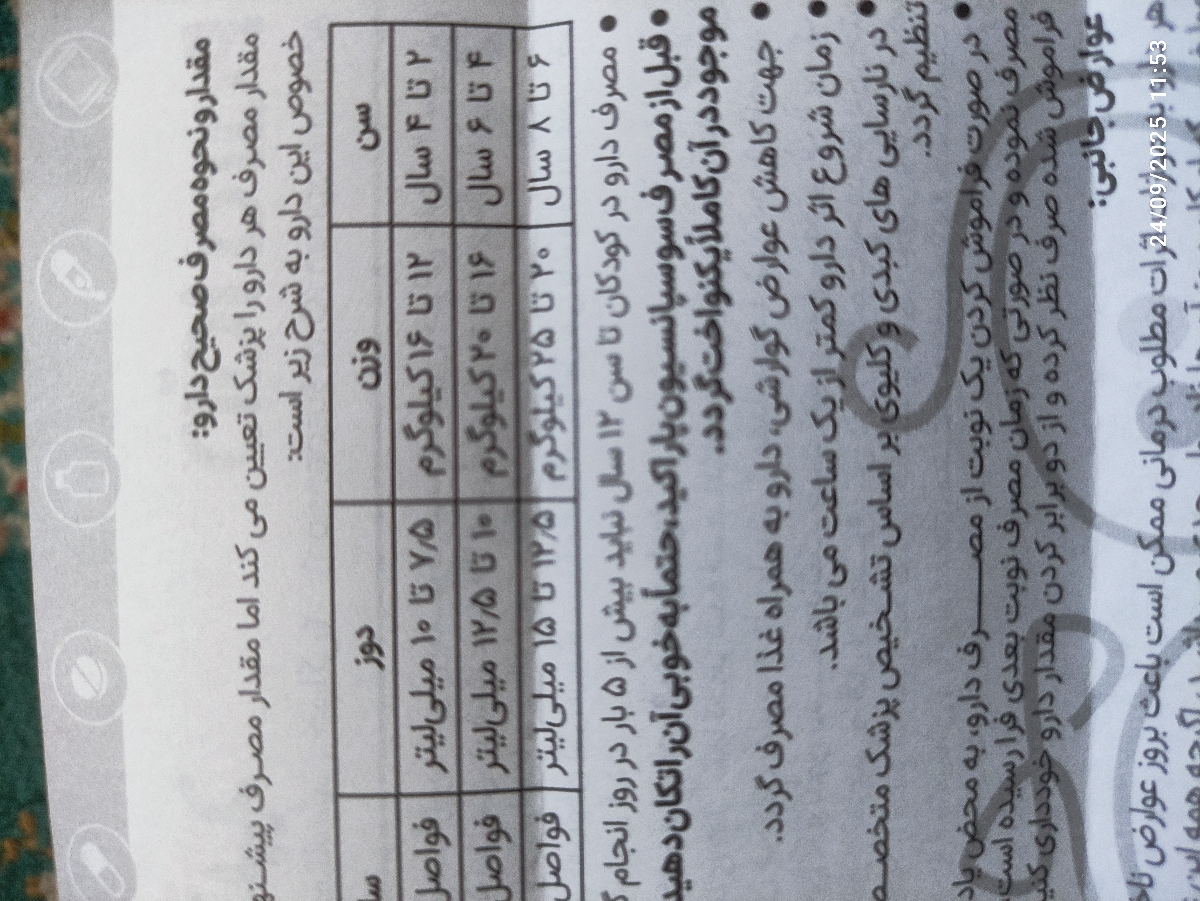 مقدار و نحوه مصرف صحیح دارو:
مقدار مصرف هر دارو را پزشک تعیین می کند اما مقدار مصرف
خصوص این دارو به شرح زیر است:
سن وزن دوز
۲ تا ۴ سال ۱۲ تا ۱۶ کیلوگرم ۷/۵ تا ۱۰ میلی‌لیتر فواصل
۴ تا ۶ سال ۱۶ تا ۲۰ کیلوگرم ۱۰ تا ۱۲/۵ میلی‌لیتر فواصل
۶ تا ۸ سال ۲۰ تا ۲۵ کیلوگرم ۱۲/۵ تا ۱۵ میلی‌لیتر فواصل
• مصرف دارو در کودکان تا سن ۱۲ سال نباید بیش از ۵ بار در روز انجام
• قبل از مصرف سوسپانسیون پاراکید، حتماً به خوبی آن را تکان دهید
موجود در آن کاملاً یکنواخت گردد.
• جهت کاهش عوارض گوارشی، دارو به همراه غذا مصرف گردد.
• زمان شروع اثر دارو کمتر از یک ساعت می باشد.
• در نارسایی های کبدی و کلیوی بر اساس تشخیص پزشک متخصص
تنظیم گردد.
• در صورت فراموش کردن یک نوبت از مصرف دارو، به محض یاد
مصرف نموده و در صورتی که زمان مصرف نوبت بعدی فرا رسیده است
فراموش شده صرف نظر کرده و از دو برابر کردن مقدار دارو خودداری کنید
عوارض جانبی:
هر دارو به اثرات مطلوب درمانی ممکن است باعث بروز عوارض
اگرچه همه این
24/09/2025 11:53